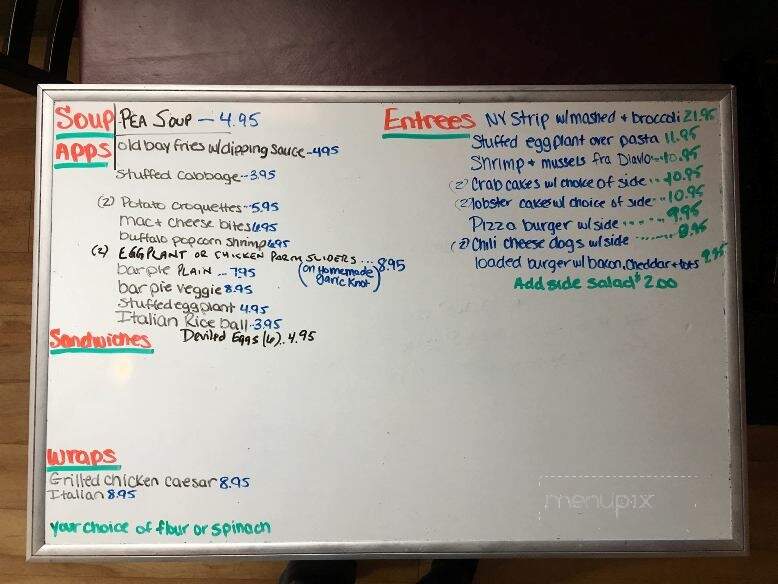 Soup PEA SOUP - 4.95
APPS old bay fries w/dipping sauce - 4.95
Stuffed Cabbage - 3.95
(2) Potato croquettes - 5.95
mac + cheese bites 6.95
buffalo popcorn shrimp 6.95
(2) EGGPLANT OR CHICKEN PARM SLIDERS ... 8.95
(on Homemade Garlic Knot)
bar pie PLAIN ... 7.95
bar pie veggie 8.95
Stuffed eggplant 4.95
Italian Rice ball - 3.95
Deviled Eggs (6).. 4.95
Sandwiches
Wraps
Grilled chicken caesar 8.95
Italian 8.95
your choice of flour or spinach
Entrees NY Strip w/mashed + broccoli 21.95
Stuffed eggplant over pasta 11.95
Shrimp + mussels fra Diavlo - 10.95
(2) Crab cakes w/ choice of side .. 10.95
(2) lobster cakes w/ choice of side - 10.95
Pizza burger w/ side ..... 9.95
(2) Chili cheese dogs w/ side ....... 8.95
loaded burger w/ bacon, cheddar + tots 9.95
Add side salad $2.00
menupix